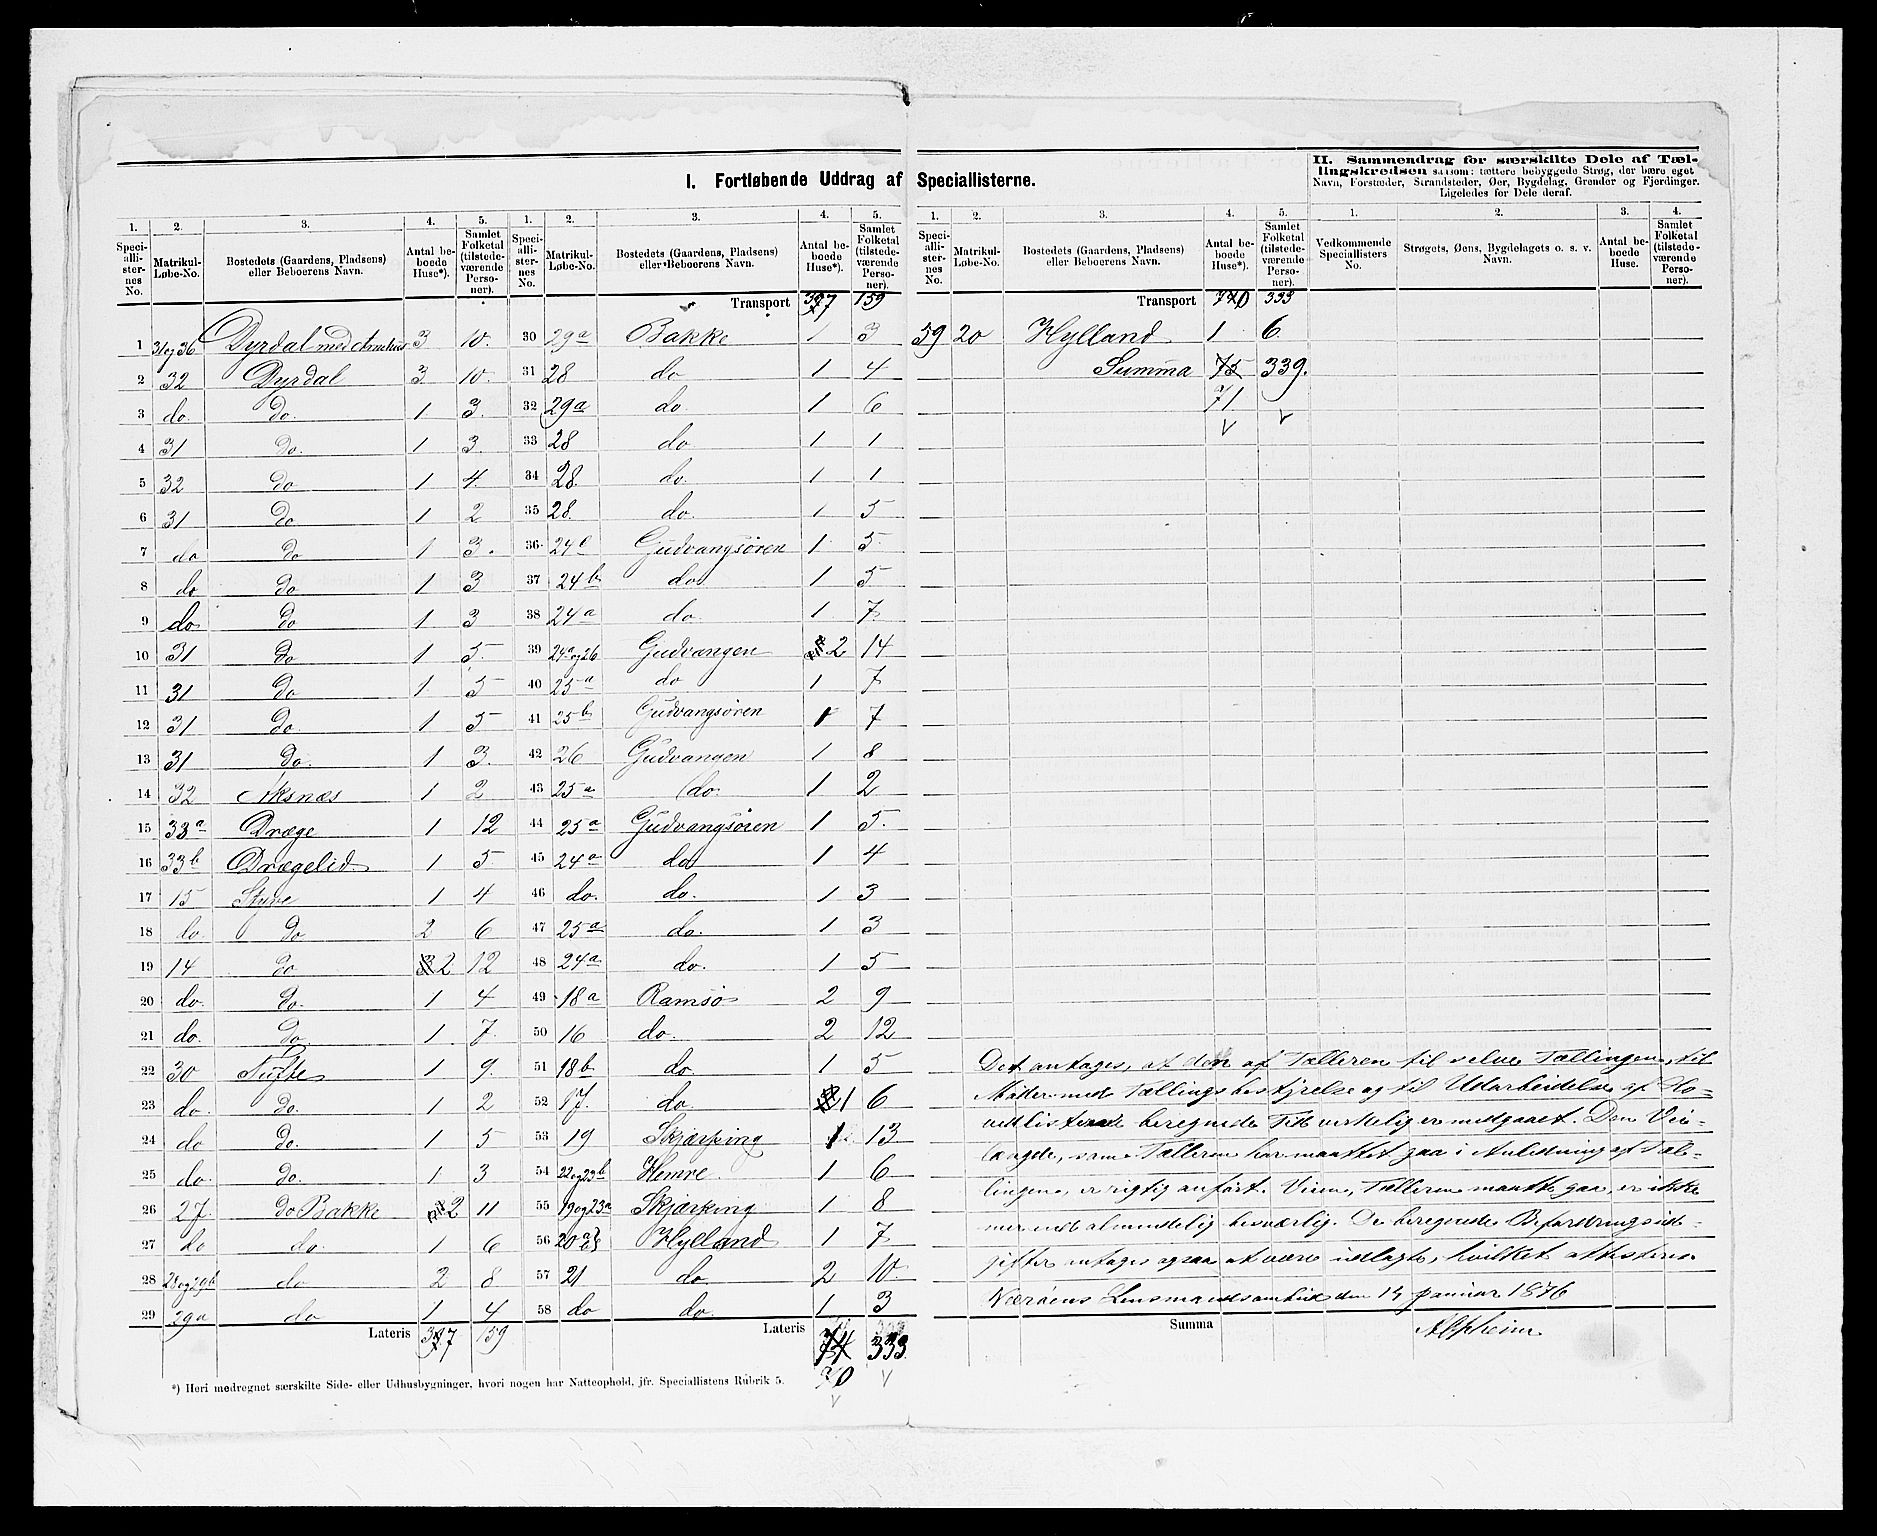 I. Fortløbende Uddrag af Speciallisterne.
II. Sammendrag for særskilte Dele af Tæl-
lingskredsen saasom: tættere bebyggede Strøg, der bære eget
Navn, Forstæder, Strandsteder, Øer, Bygdelag, Grender og Fjerdinger.
Ligeledes for Dele deraf.
1. 2. 3. 4. 5.
Speci-alli-ster-nes No. Matrikul-Løbe-No. Bostedets (Gaardens, Pladsens) eller Beboerens Navn. Antal be-boede Huse*). Samlet Folketal (tilstede-værende Perso-ner).
1 31og36 Dyrdal med 3 10.
2 32 Dyrdal 3 10.
3 do. Do. 1 3.
4 31 Do. 1 3.
5 32 Do 1 4.
6 31 Do 1 2
7 do Do 1 3.
8 do Do 1 3
9 do Do 1 3
10 31 Do 1 5.
11 31 Do 1 5
12 31 Do. 1 5
13 31 Do. 1 3.
14 32 Aksnæs 1 2
15 33a Dræge 1 12
16 33b Drægelid. 1 5
17 15 Styve 1 4
18 do Do 2 6
19 14 Do 3 2 12
20 do. Do. 1 4
21 do. Do. 1 7.
22 30 Tufte 1 9.
23 do. Do. 1 2
24 do Do. 1 5
25 do. Do. 1 3
26 27. Do Bakke 2 11
27 do do. 1 6
28 28og29b do 2 8
29 29a do 1 4
Lateris 37 159
1. 2. 3. 4. 5.
Speci-alli-ster-nes No. Matrikul-Løbe-No. Bostedets (Gaardens, Pladsens) eller Beboerens Navn. Antal be-boede Huse*). Samlet Folketal (tilstede-værende Perso-ner).
Transport 37 159
30 29a Bakke 1 3
31 28 do 1 4
32 29a do. 1 6
33 28 do 1 1
34 28. do. 1 1
35 28. do. 1 5
36 24c Gudvangsøren 1 5
37 24b do 1 5
38 24a do. 1 7
39 24a og 26 Gudvangen 2 14
40 25a do 1 7
41 25b Gudvangsøren 1 7
42 26 Gudvangen 1 8
43 25a do. 1 2
44 25a Gudvangsøren 1 5.
45 24a do 1 4
46 do. do. 1 3
47 25a do. 1 3
48 24a do. 1 5
49 18a Ramsø 2 9
50 16 do. 2 12
51 18b do 1 5
52 17. do 1 6
53 19 Skjærping 1 13
54 22og23b Hemre. 1 6
55 19og23a Skjærping 1 8
56 20 Hylland 1 7
57 21 do 2 10
58 do do. 1 3
Lateris 74 333
70
*) Heri medregnet særskilte Side- eller Udhusbygninger, hvori nogen har Natteophold, jfr. Speciallistens Rubrik 5.
1. 2. 3. 4. 5.
Speci-alli-ster-nes No. Matrikul-Løbe-No. Bostedets (Gaardens, Pladsens) eller Beboerens Navn. Antal be-boede Huse*). Samlet Folketal (tilstede-værende Perso-ner).
Transport 70 333
59 20 Hylland 1 6.
Summa 75 339.
71
Det antages, at den af Tælleren til selve Tællingen, til
Møder med Tællingsbestyrelse og til Udarbeidelse af Ho-
vedlisterne beregnede Tid virkelig er medgaaet. Den Vei-
længde, som Tælleren har maattet gaa i Anledning af Tæl-
lingen, er rigtig anført. Veien, Tælleren maatte gaa, er ikke
mer end almindelig besværlig. De beregnede Befordringsud-
gifter antages ogsaa at være udlagte, hvilket attesteres
Nærøens Lensmandsombud den 14 januar 1876
Summa
1. 2. 3. 4.
Vedkommende Speciallisters No. Strøgets, Øens, Bygdelagets o. s. v. Navn. Antal be-boede Huse. Samlet Folketal (tilstede-værende Perso-ner).